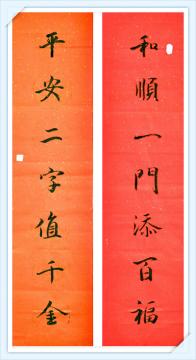 和順一門添百福
平安二字值千金